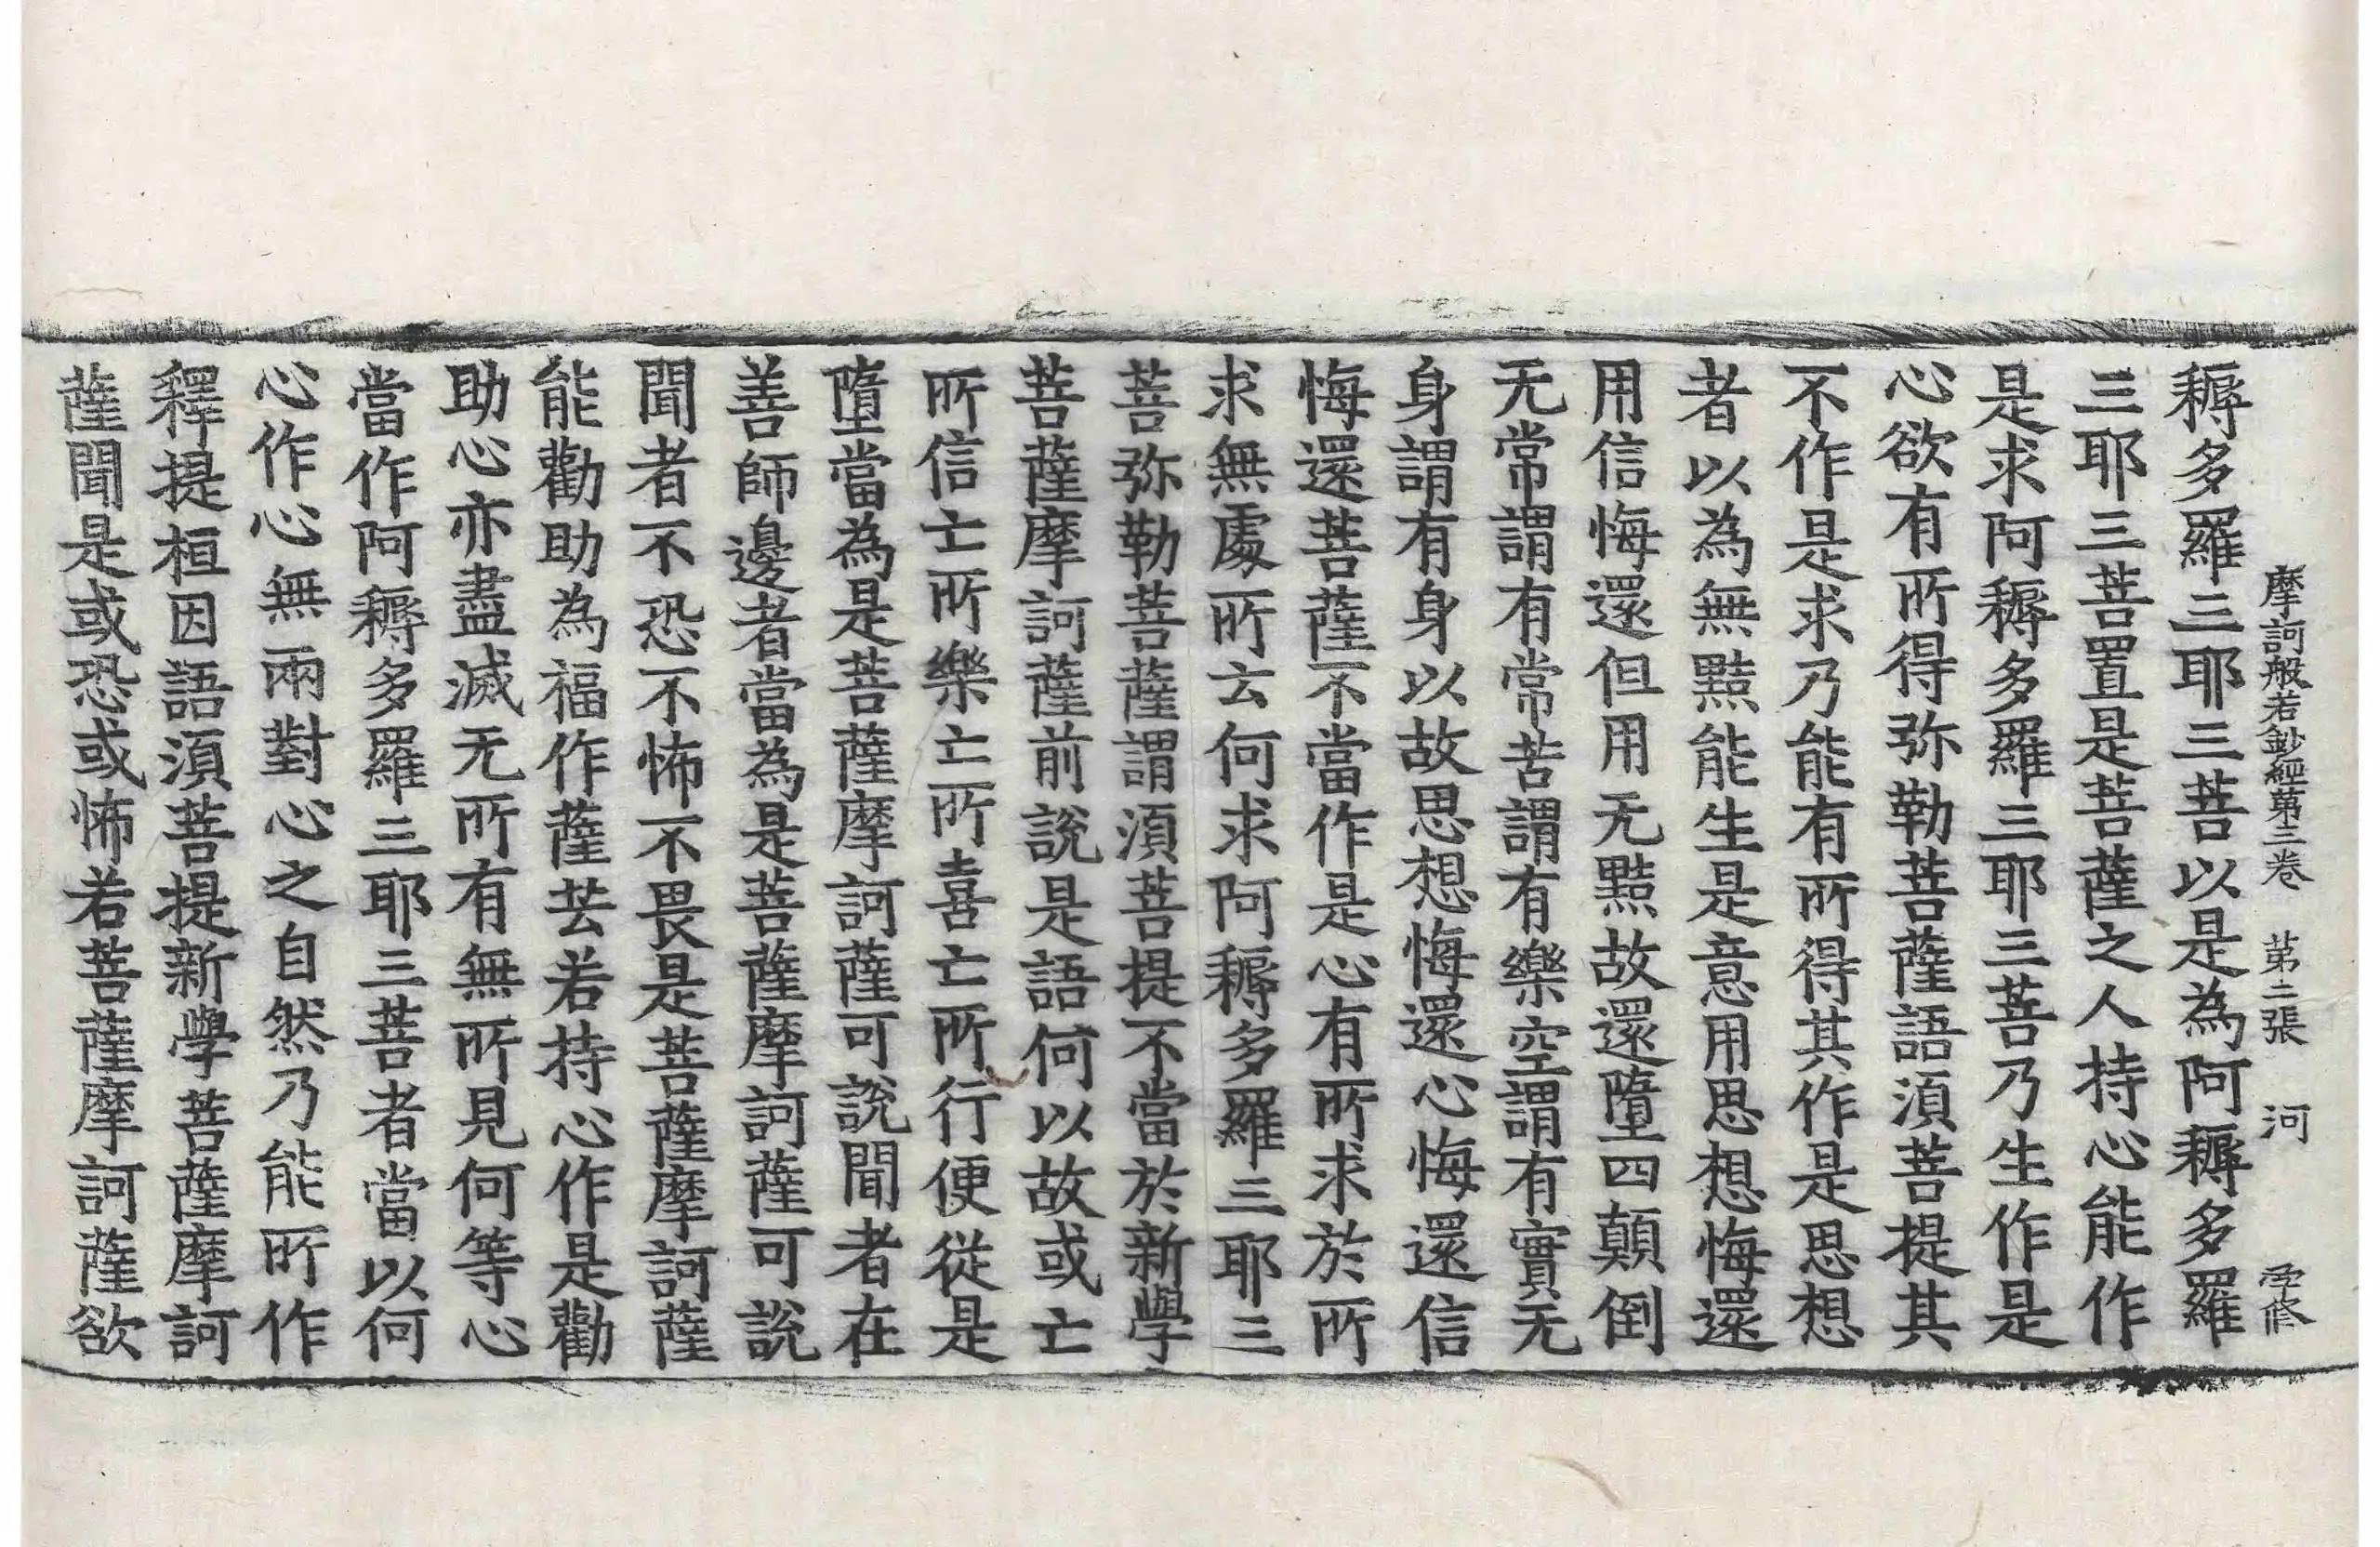 摩訶般若鈔經第三卷 第二張 河 孚修
耨多羅三耶三菩以是為阿耨多羅
三耶三菩置是菩薩之人持心能作
是求阿耨多羅三耶三菩乃生作是
心欲有所得弥勒菩薩語湏菩提其
不作是求乃能有所得其作是思想
者以為無黠能生是意用思想悔還
用信悔還但用无黠故還墮四顛倒
无常謂有常苦謂有樂空謂有實无
身謂有身以故思想悔還心悔還信
悔還菩薩不當作是心有所求於所
求無處所云何求阿耨多羅三耶三
菩弥勒菩薩謂湏菩提不當於新學
菩薩摩訶薩前說是語何以故或亡
所信亡所樂亡所喜亡所行便從是
墮當為是菩薩摩訶薩可說聞者在
善師邊者當為是菩薩摩訶薩可說
聞者不恐不怖不畏是菩薩摩訶薩
能勸助為福作薩芸若持心作是勸
助心亦盡滅无所有無所見何等心
當作阿耨多羅三耶三菩者當以何
心作心無兩對心之自然乃能所作
釋提桓因語湏菩提新學菩薩摩訶
薩聞是或恐或怖若菩薩摩訶薩欲